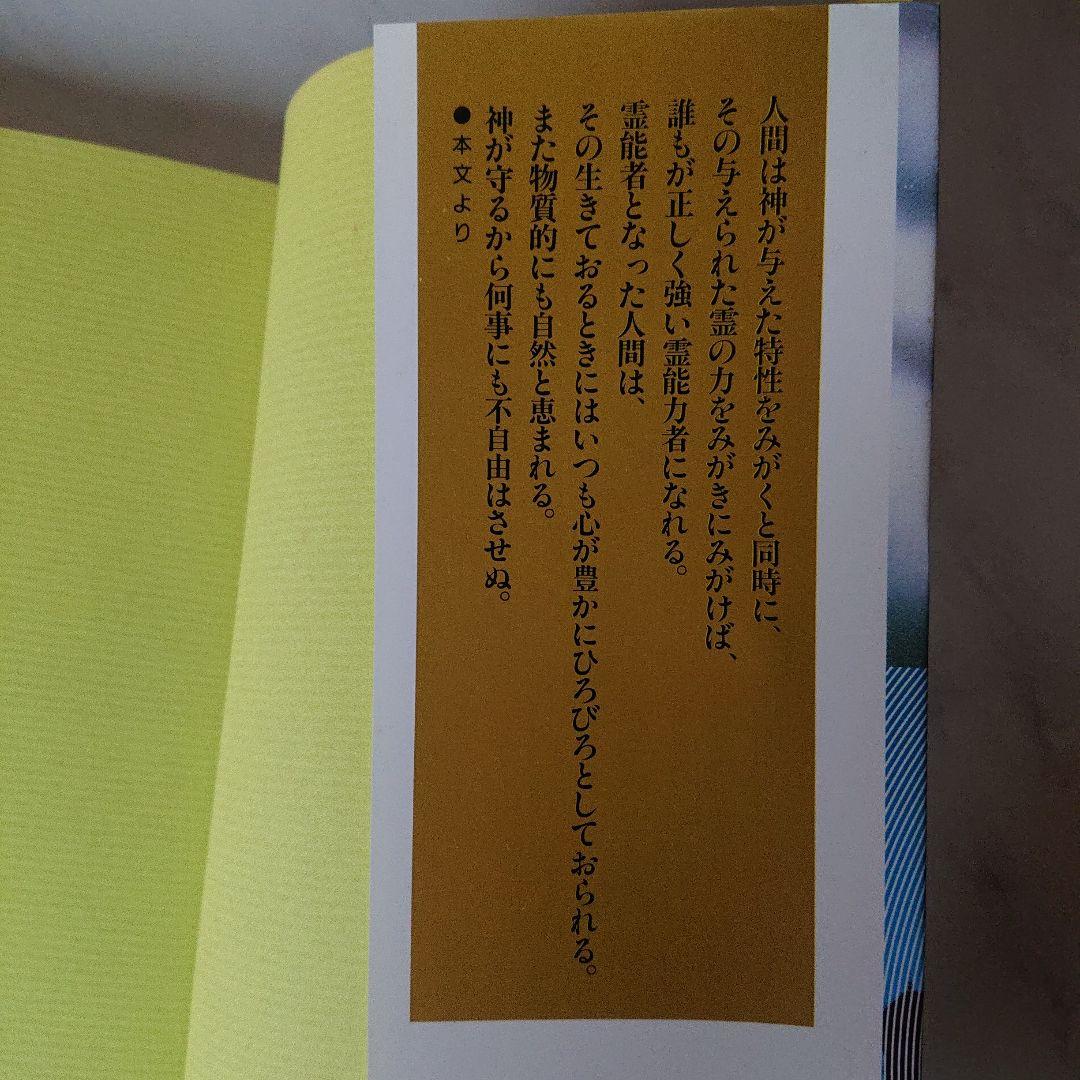 人間は神が与えた特性をみがくと同時に、
その与えられた霊の力をみがきにみがけば、
誰もが正しく強い霊能力者になれる。
霊能者となった人間は、
その生きておるときにはいつも心が豊かにひろびろとしておられる。
また物質的にも自然と恵まれる。
神が守るから何事にも不自由はさせぬ。
●本文より